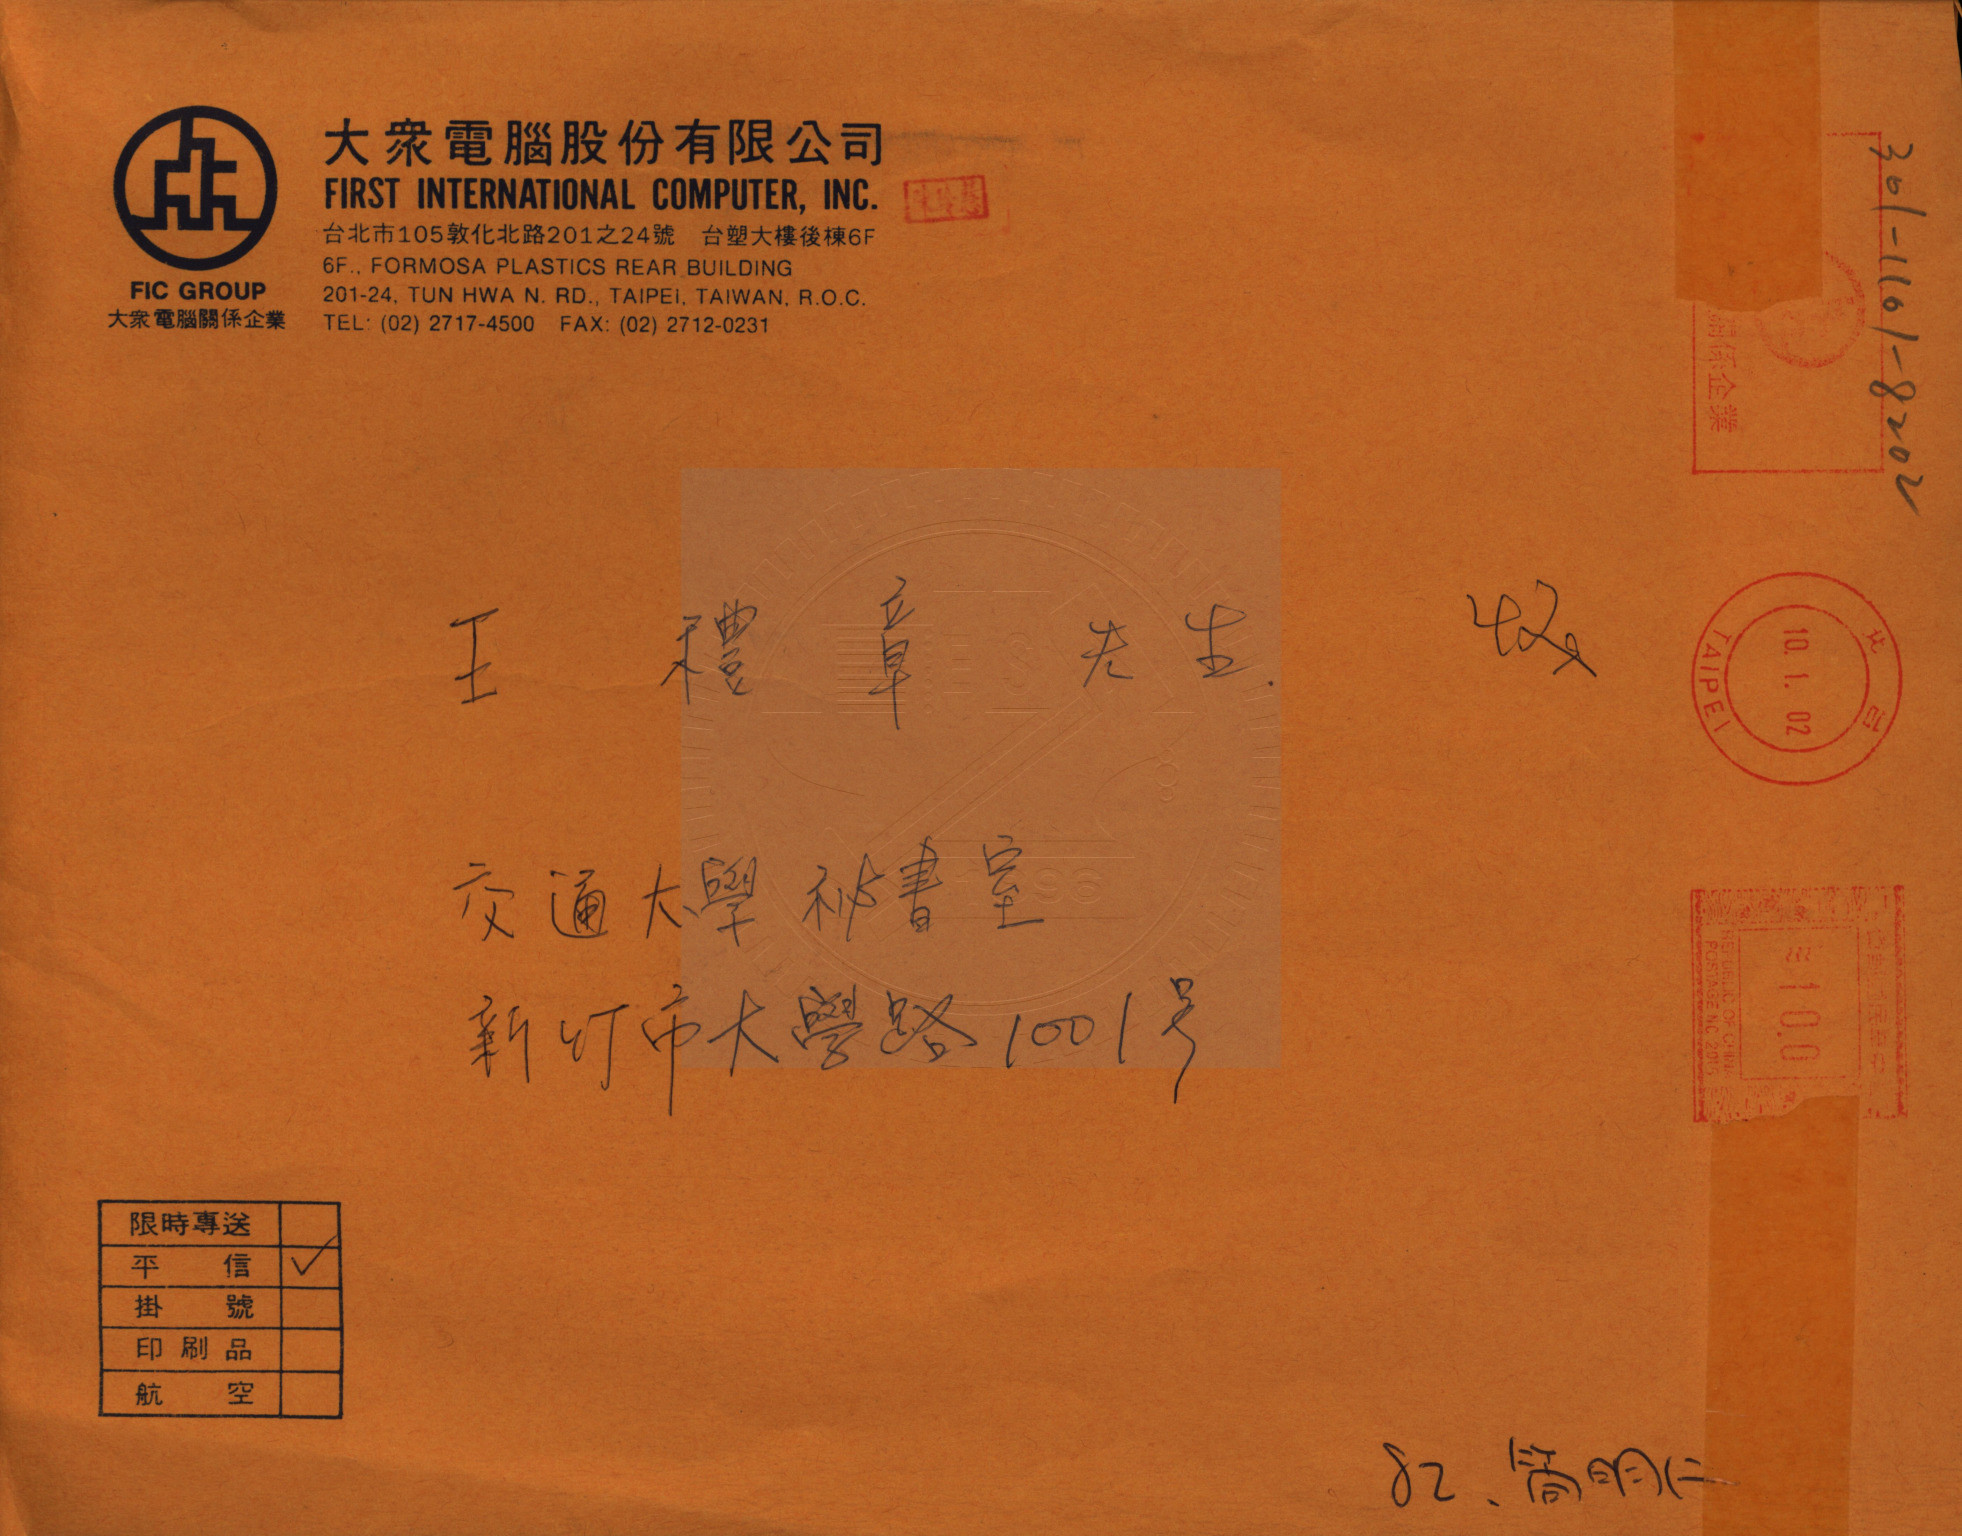 大衆電腦股份有限公司
FIRST INTERNATIONAL COMPUTER, INC.
台北市105敦化北路201之24號 台塑大樓後棟6F
6F., FORMOSA PLASTICS REAR BUILDING
201-24, TUN HWA N. RD., TAIPEI, TAIWAN, R.O.C.
TEL: (02) 2717-4500 FAX: (02) 2712-0231
FIC GROUP
大衆電腦關係企業
301-1101-8202
關係企業
王禮章先生.
交通大學祕書室
新竹市大學路1001号
台北
10.1.02
TAIPEI
REPUBLIC OF CHINA
10.0
限時專送
平信 ✓
掛號
印刷品
航空
82、簡明仁